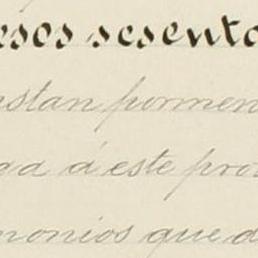 esos sesenta
nstan pormen
ga á este pro
monios que d